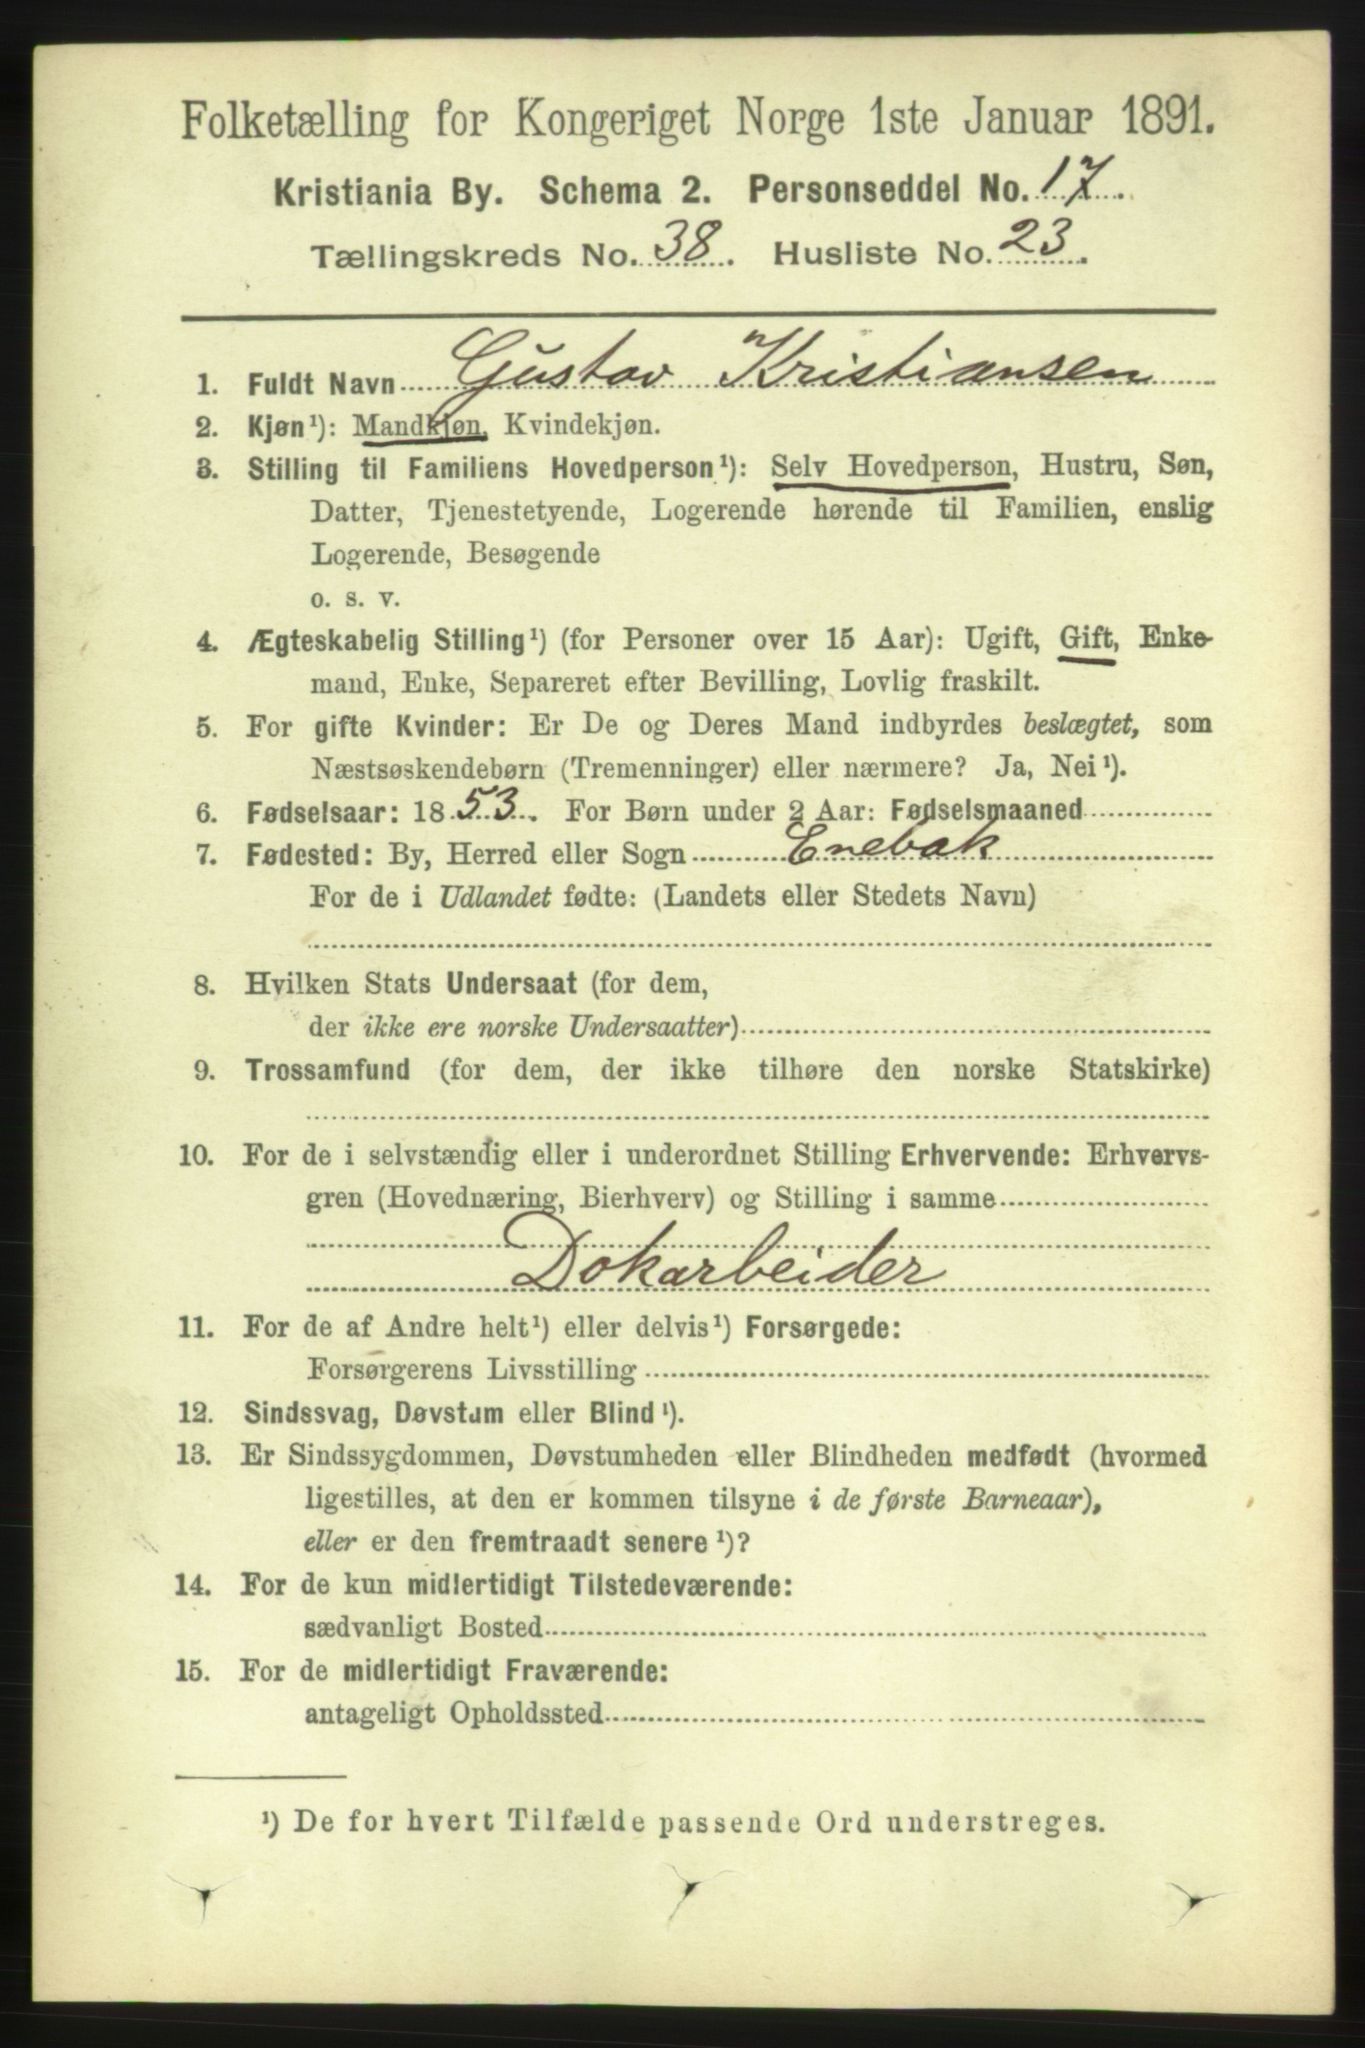 Folketælling for Kongeriget Norge 1ste Januar 1891.
Kristiania By. Schema 2. Personseddel No. 17.
Tællingskreds No. 38. Husliste No. 23.
1. Fuldt Navn Gustav Kristiansen
2. Kjøn¹): Mandkjøn, Kvindekjøn.
3. Stilling til Familiens Hovedperson¹): Selv Hovedperson, Hustru, Søn,
Datter, Tjenestetyende, Logerende hørende til Familien, enslig
Logerende, Besøgende
o. s. v.
4. Ægteskabelig Stilling¹) (for Personer over 15 Aar): Ugift, Gift, Enke-
mand, Enke, Separeret efter Bevilling, Lovlig fraskilt.
5. For gifte Kvinder: Er De og Deres Mand indbyrdes beslægtet, som
Næstsøskendebørn (Tremenninger) eller nærmere? Ja, Nei¹).
6. Fødselsaar: 1853. For Børn under 2 Aar: Fødselsmaaned
7. Fødested: By, Herred eller Sogn Enebak
For de i Udlandet fødte: (Landets eller Stedets Navn)
8. Hvilken Stats Undersaat (for dem,
der ikke ere norske Undersaatter)
9. Trossamfund (for dem, der ikke tilhøre den norske Statskirke)
10. For de i selvstændig eller i underordnet Stilling Erhvervende: Erhvervs-
gren (Hovednæring, Bierhverv) og Stilling i samme
Dokarbeider
11. For de af Andre helt¹) eller delvis¹) Forsørgede:
Forsørgerens Livsstilling
12. Sindssvag, Døvstum eller Blind¹).
13. Er Sindssygdommen, Døvstumheden eller Blindheden medfødt (hvormed
ligestilles, at den er kommen tilsyne i de første Barneaar),
eller er den fremtraadt senere¹)?
14. For de kun midlertidigt Tilstedeværende:
sædvanligt Bosted
15. For de midlertidigt Fraværende:
antageligt Opholdssted
¹) De for hvert Tilfælde passende Ord understreges.